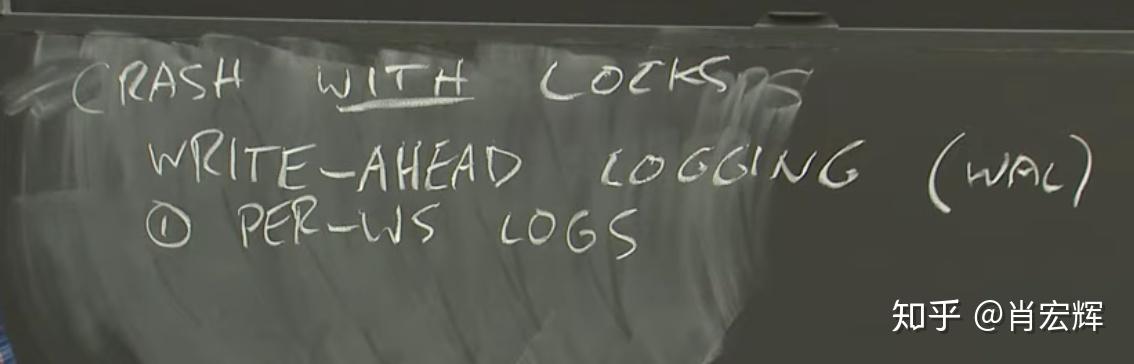 CRASH WITH LOCKS
WRITE-AHEAD LOGGING (WAL)
① PER-WS LOGS
知乎 @肖宏辉